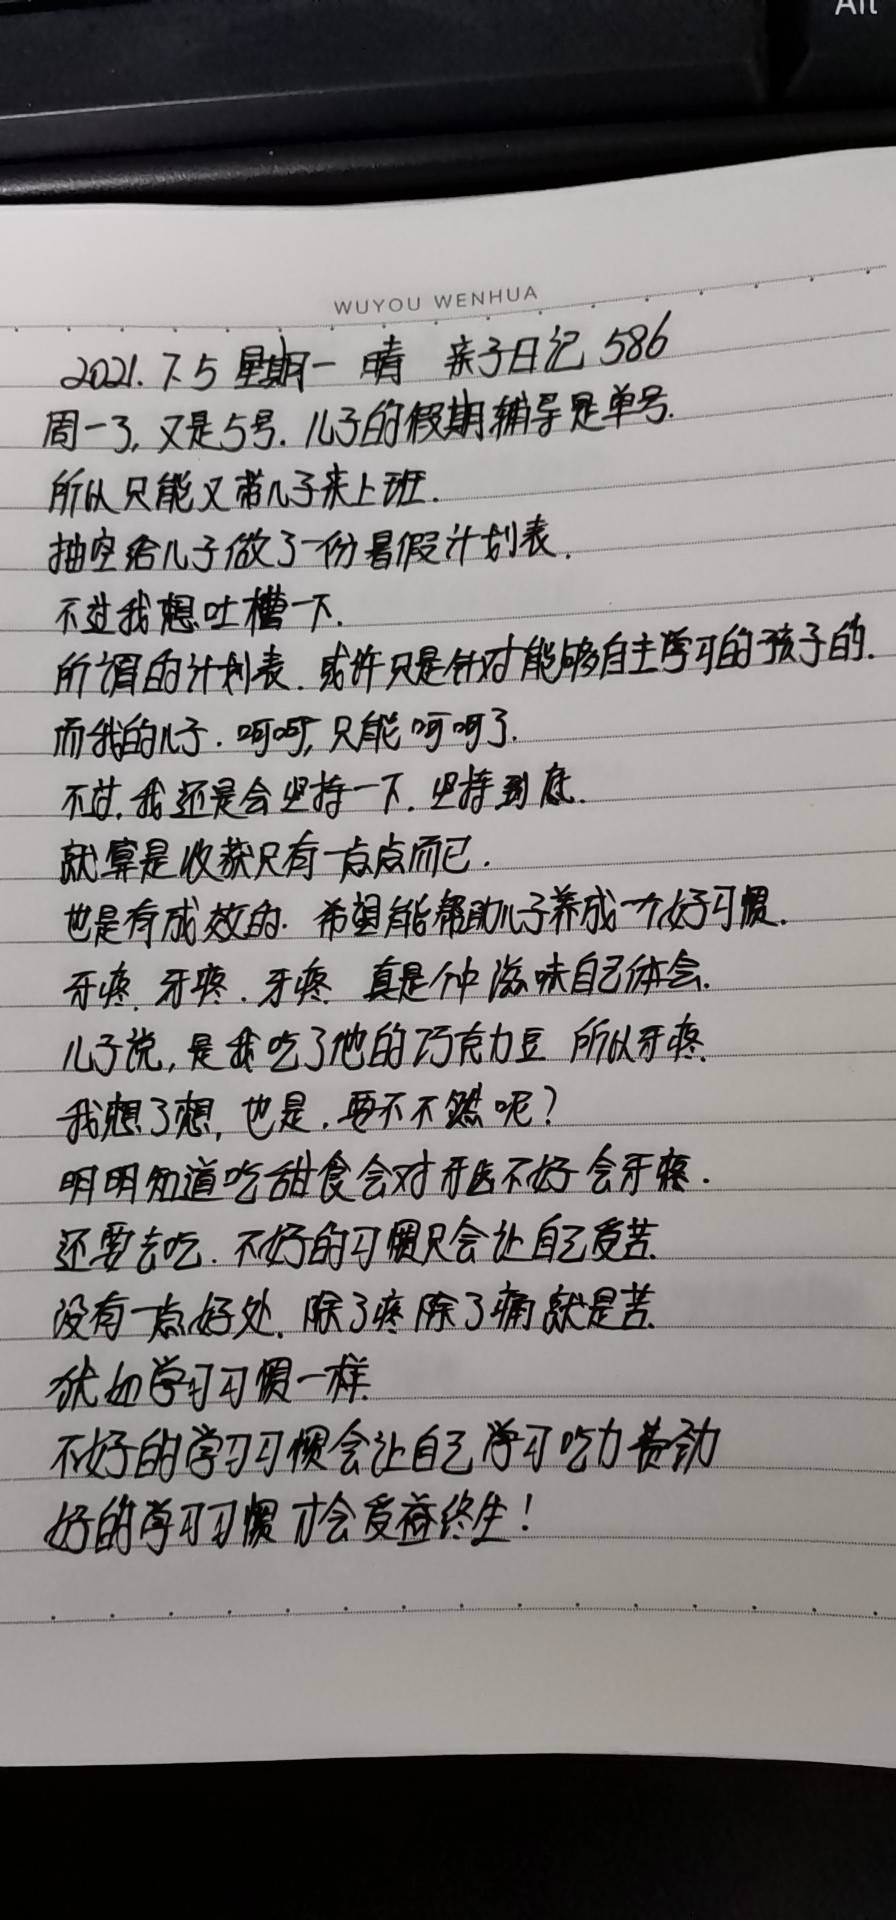 Alt
WUYOU WENHUA
2021.7.5 星期一 晴 亲子日记 586
周一了,又是5号.儿子的假期辅导是单号.
所以只能又带儿子来上班.
抽空给儿子做了一份暑假计划表.
不过我想吐槽一下.
所谓的计划表.或许只是针对能够自主学习的孩子的.
而我的儿子.呵呵,只能呵呵了.
不过.我还是会坚持一下.坚持到底.
就算是收获只有一点点而已.
也是有成效的.希望能帮助儿子养成一个好习惯.
牙疼.牙疼.牙疼 真是个中滋味自己体会.
儿子说,是我吃了他的巧克力豆 所以牙疼.
我想了想,也是.要不不然呢?
明明知道吃甜食会对牙齿不好会牙疼.
还要去吃.不好的习惯只会让自己受苦.
没有一点好处.除了疼除了痛就是苦.
犹如学习习惯一样.
不好的学习习惯会让自己学习吃力费劲
好的学习习惯才会受益终生!